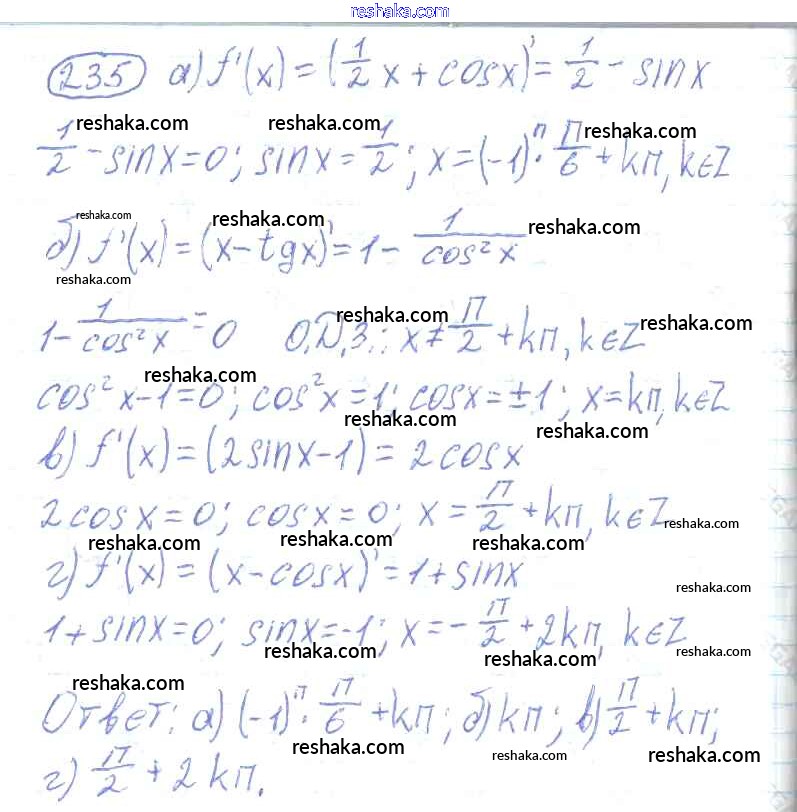 reshaka.com
235 а) f'(x) = (1/2 x + cosx)' = 1/2 - sinx
reshaka.com reshaka.com reshaka.com
1/2 - sinx = 0; sinx = 1/2; x = (-1)ⁿ · π/6 + kπ, k∈Z
reshaka.com reshaka.com reshaka.com
б) f'(x) = (x - tgx)' = 1 - 1/cos²x
reshaka.com
reshaka.com reshaka.com
1 - 1/cos²x = 0 О.Д.З.: x ≠ π/2 + kπ, k∈Z
reshaka.com
cos²x - 1 = 0; cos²x = 1; cosx = ±1; x = kπ, k∈Z
reshaka.com reshaka.com
в) f'(x) = (2sinx - 1) = 2cosx
2cosx = 0; cosx = 0; x = π/2 + kπ, k∈Z
reshaka.com
reshaka.com reshaka.com reshaka.com
г) f'(x) = (x - cosx)' = 1 + sinx
reshaka.com
1 + sinx = 0; sinx = -1; x = -π/2 + 2kπ, k∈Z
reshaka.com reshaka.com reshaka.com
reshaka.com
Ответ: а) (-1)ⁿ · π/6 + kπ; б) kπ; в) π/2 + kπ;
reshaka.com reshaka.com reshaka.com
г) π/2 + 2kπ.